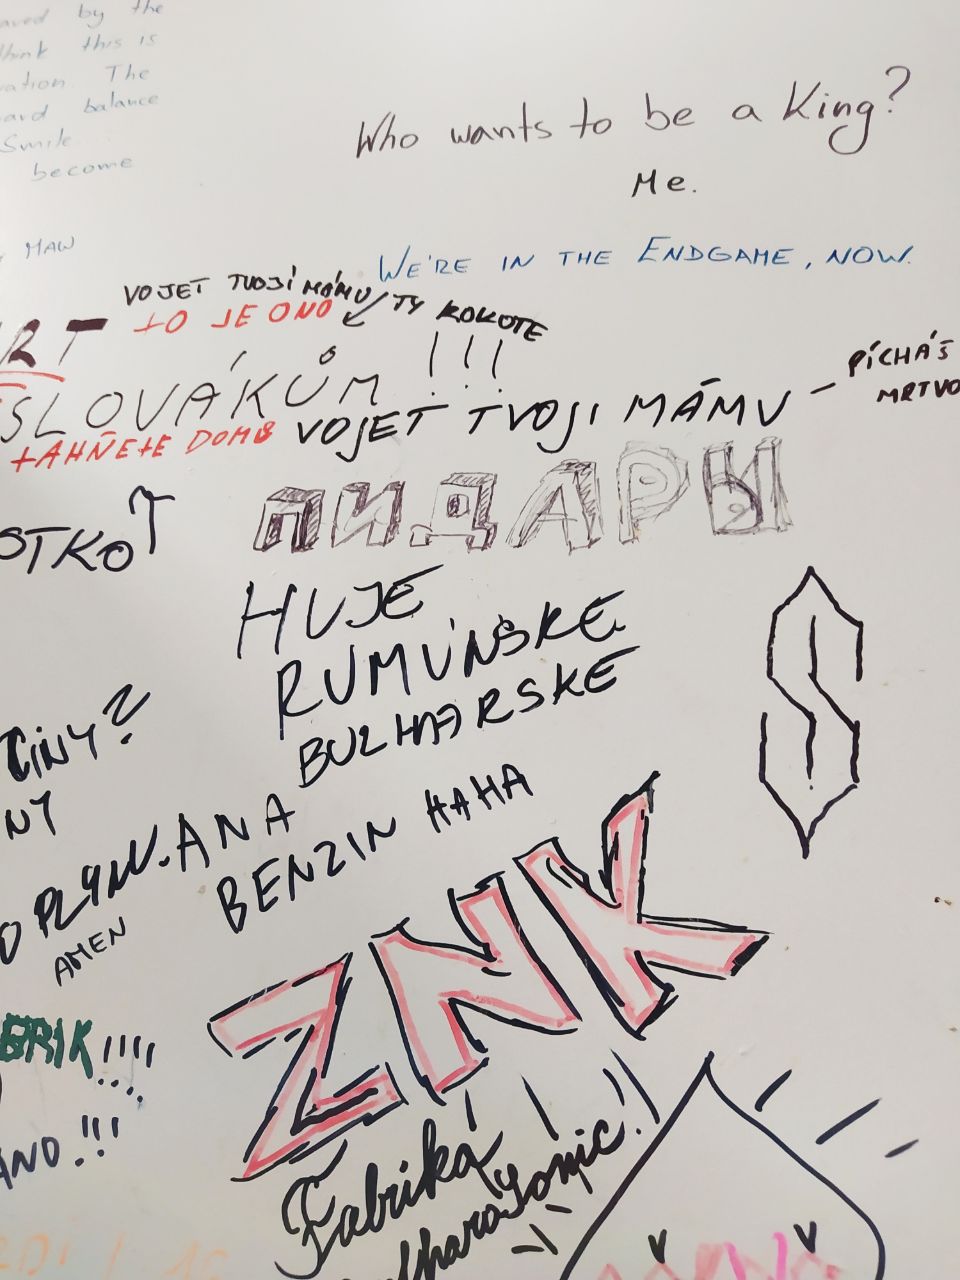 by the
think this is
The
balance
Smile
become
Who wants to be a King?
Me.
MAW
WE'RE IN THE ENDGAME, NOW.
VOJET TVOJÍ MÁMU TY KOKOTE
RT TO JE ONO
SLOVÁKŮM !!!
PÍCHÁŠ
MRTVO
TÁHNĚTE DOMŮ VOJET TVOJI MÁMU
ПИДАРЫ
STKO
HUJE
RUMUNSKE
BULHARSKE
ČINY?
NY
ANA
BENZIN HAHA
AMEN
ZNK
BRIK!!!!
ANO!!!
Fabrika